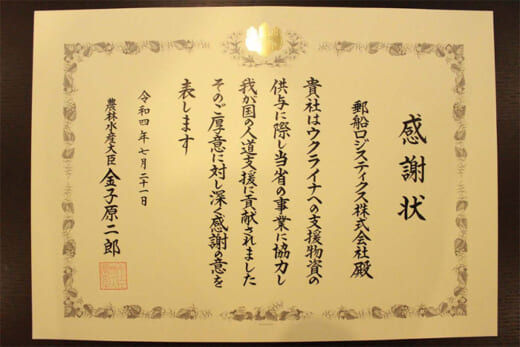 感謝状
郵船ロジスティクス株式会社 殿
貴社はウクライナへの支援物資の
供与に際し当省の事業に協力し
我が国の人道支援に貢献されました
そのご厚意に対し深く感謝の意を
表します
令和四年七月二十一日
農林水産大臣 金子原二郎